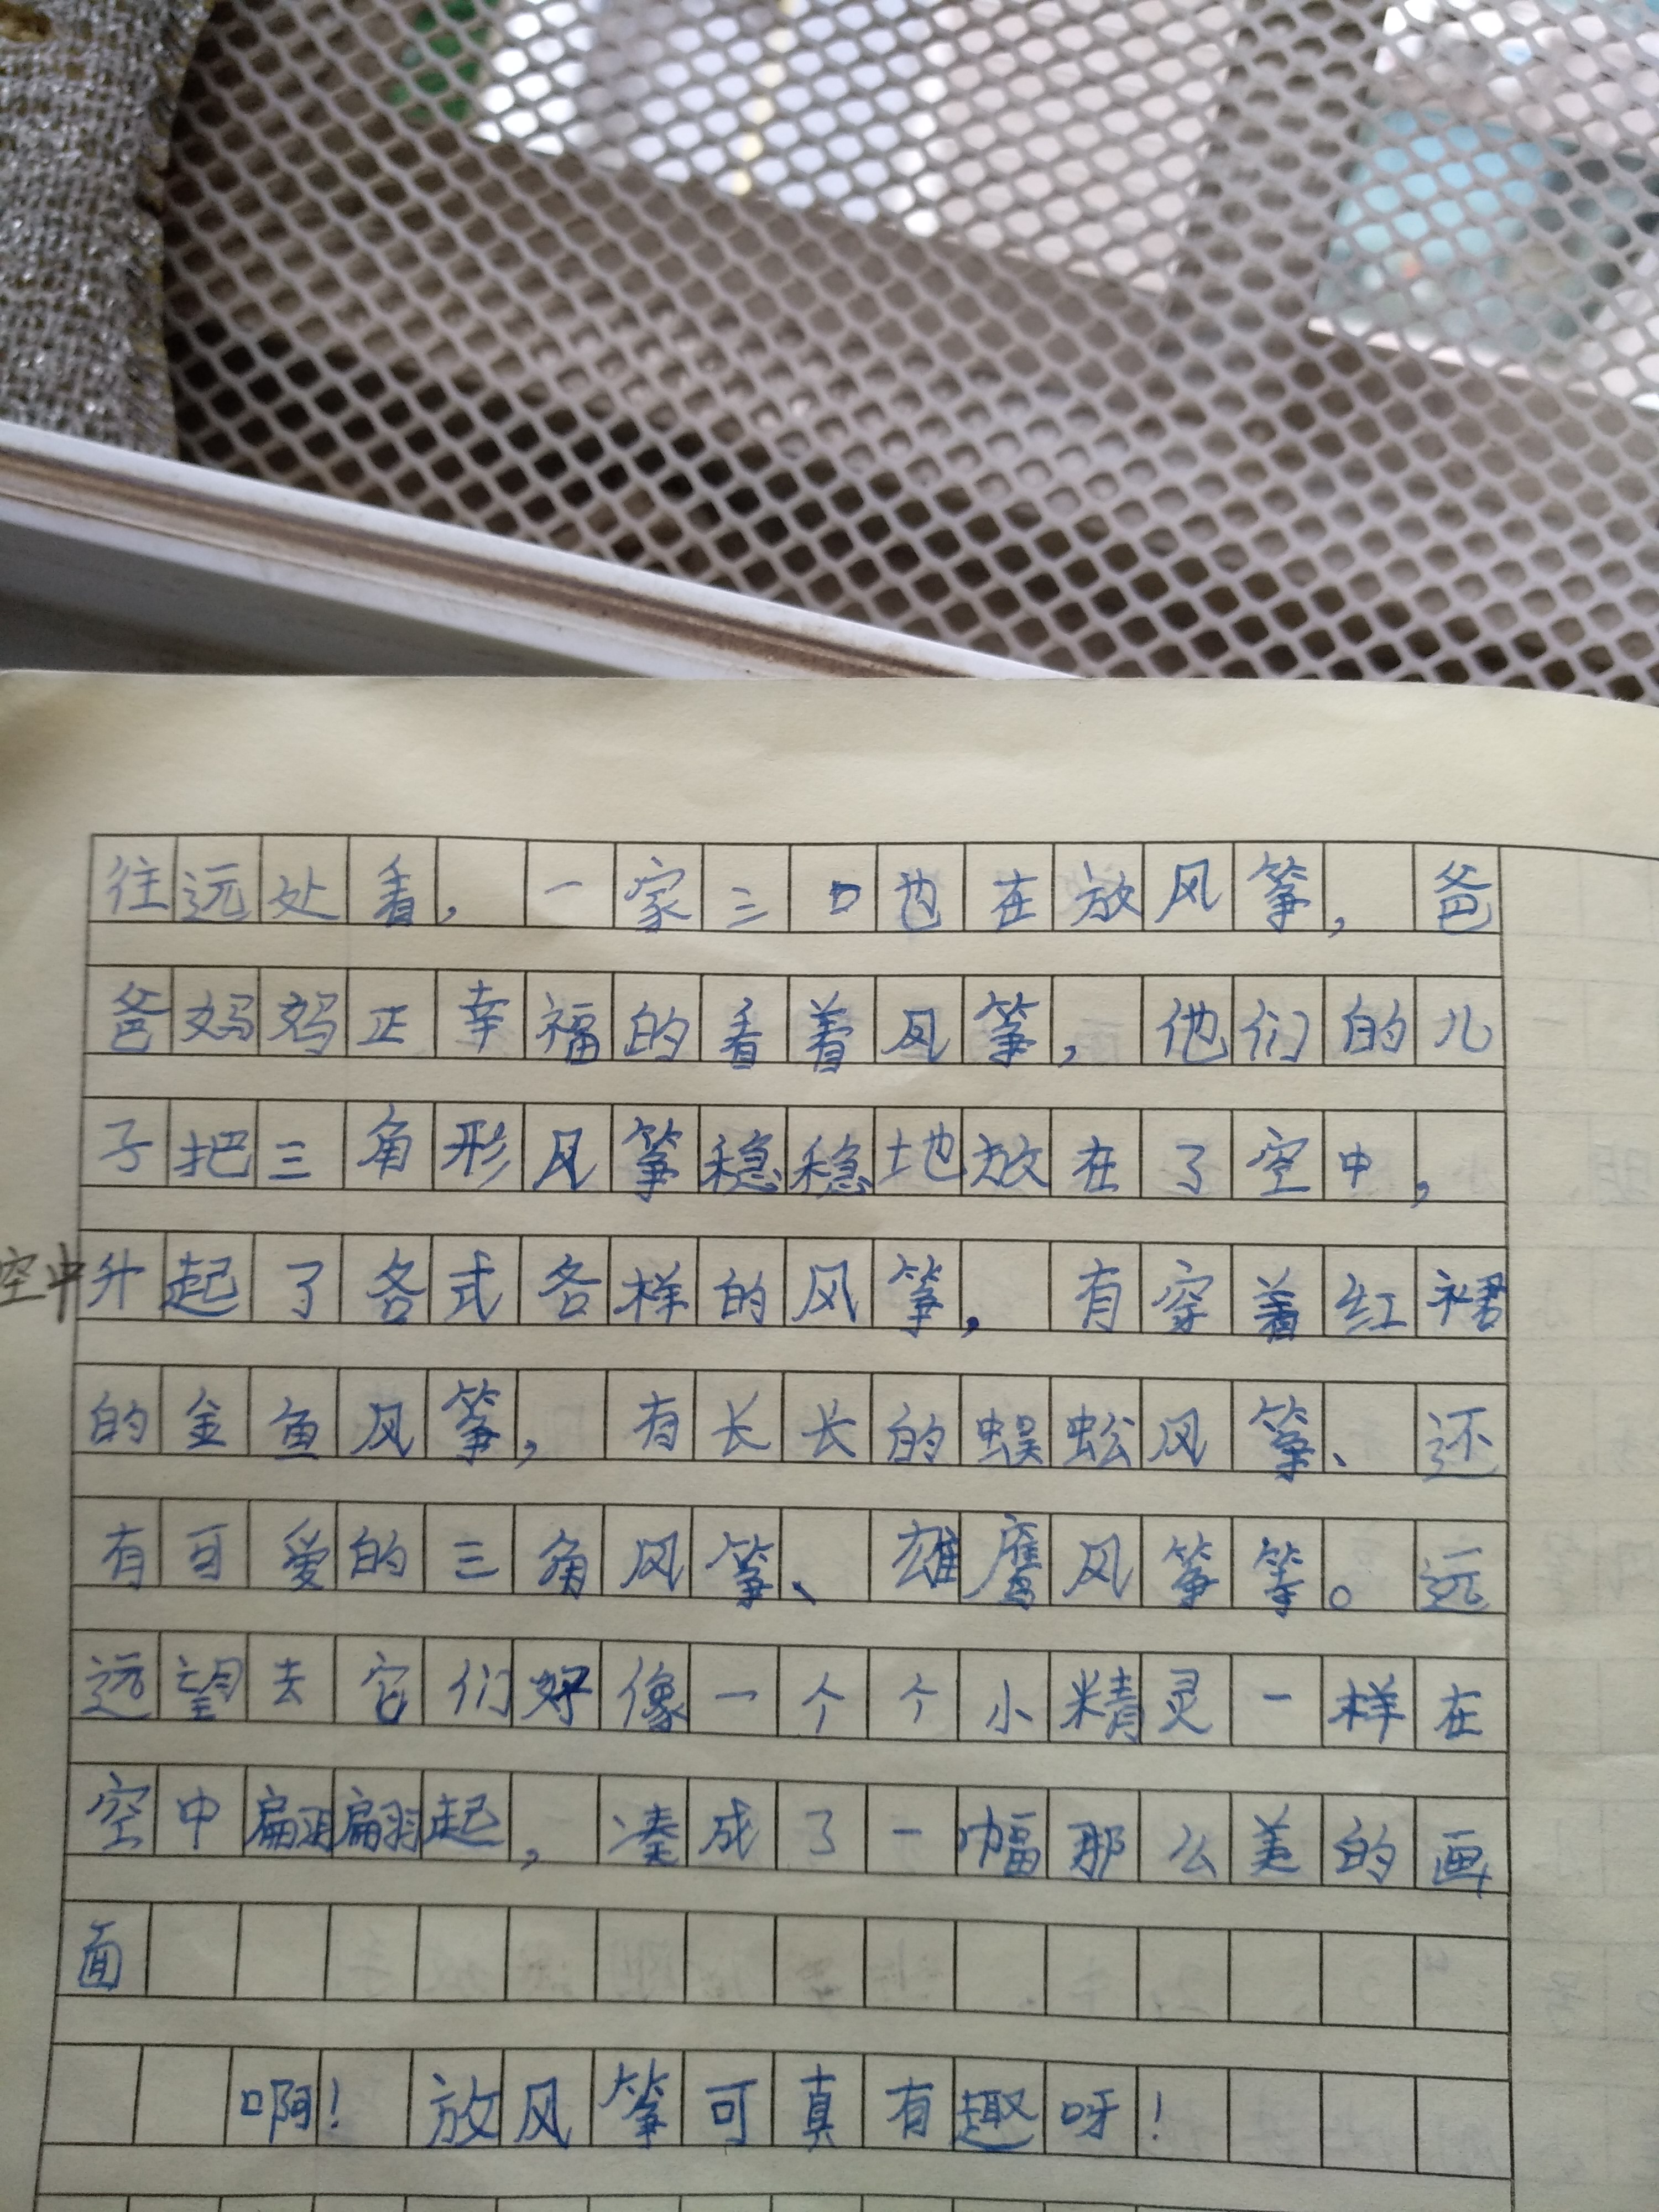 往远处看，一家三口也在放风筝，爸
爸妈妈正幸福的看着风筝，他们的儿
子把三角形风筝稳稳地放在了空中，
空中升起了各式各样的风筝，有穿着红裙
的金鱼风筝，有长长的蜈蚣风筝、还
有可爱的三角风筝、雄鹰风筝等。远
远望去它们好像一个个小精灵一样在
空中翩翩起，凑成了一幅那么美的画
面
啊！放风筝可真有趣呀！